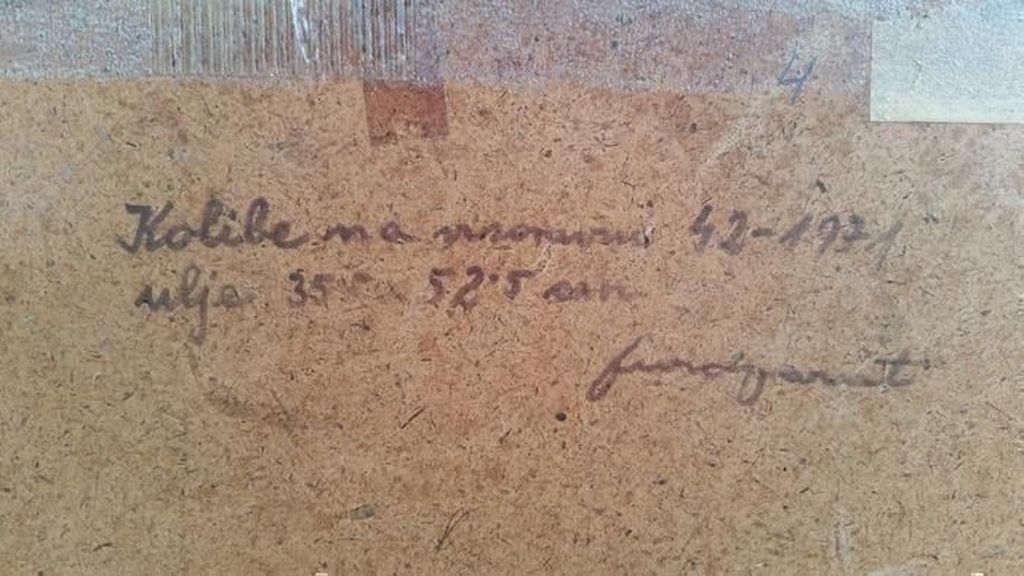 4
Kolibe na 42-1971
ulje 35'5 52'5 cm